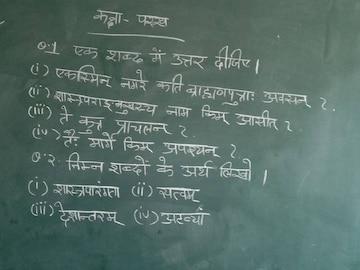 कक्षा - परख
प्र.1 एक शब्द में उत्तर दीजिए।
(i) एकस्मिन् नगरे कति ब्राह्मणपुत्राः अवसन् ?
(ii) शास्त्रपराङ्मुखस्य नाम किम् आसीत् ?
(iii) ते कुत्र प्राचलन् ?
(iv) तैः मार्गे किम् अपश्यन् ?
प्र.2. निम्न शब्दों के अर्थ लिखो।
(i) शास्त्रपारंगता (ii) सत्वम्
(iii) देशान्तरम् (iv) अटव्यां